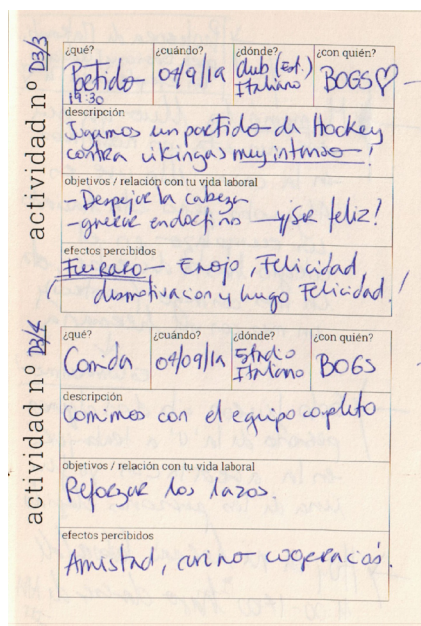 actividad nº D3/3
¿qué? ¿cuándo? ¿dónde? ¿con quién?
Partido 04/9/19 club (Est.) BOGS♡
19:30 Italiano
descripción
Jugamos un partido de Hockey
contra vikingas muy intenso!
objetivos / relación con tu vida laboral
- Despejar la cabeza
- generar endorfinas y ser feliz!
efectos percibidos
Fue RARO - Enojo, Felicidad,
desmotivacion y luego Felicidad!
actividad nº D3/4
¿qué? ¿cuándo? ¿dónde? ¿con quién?
Comida 04/09/19 Estadio BOGS
Italiano
descripción
Comimos con el equipo completo
objetivos / relación con tu vida laboral
Reforzar los lazos.
efectos percibidos
Amistad, cariño cooperación.